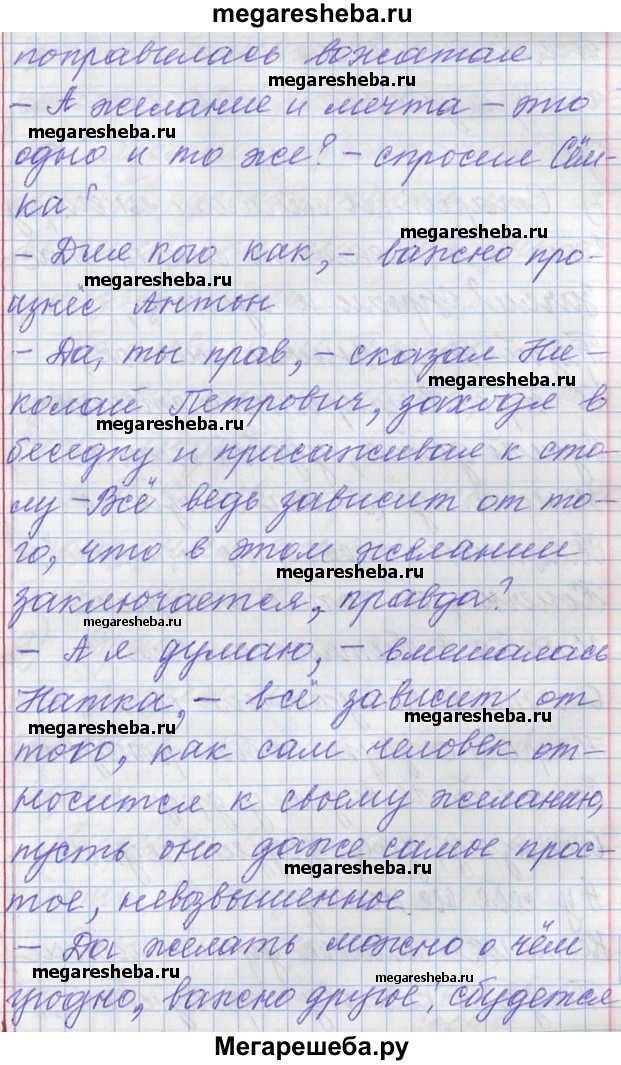 megaresheba.ru
поправилась вожатая
megaresheba.ru
– А желание и мечта – это
megaresheba.ru
одно и то же? – спросил Сём-
ка
megaresheba.ru
– Для кого как, – важно про-
megaresheba.ru
изнёс Антон
– Да, ты прав, – сказал Ни-
megaresheba.ru
колай Петрович, заходя в
megaresheba.ru
беседку и присаживая к сто-
лу – Всё ведь зависит от то-
го, что в этом желании
megaresheba.ru
заключается, правда?
megaresheba.ru
– А я думаю, – вмешалась
Натка, – всё зависит от
megaresheba.ru
megaresheba.ru
того, как сам человек от-
носится к своему желанию,
пусть оно даже самое прос-
megaresheba.ru
тое, невозвышенное.
– Да, желать можно о чём
megaresheba.ru
megaresheba.ru
угодно, важно другое, сбудется
Мегарешеба.ру